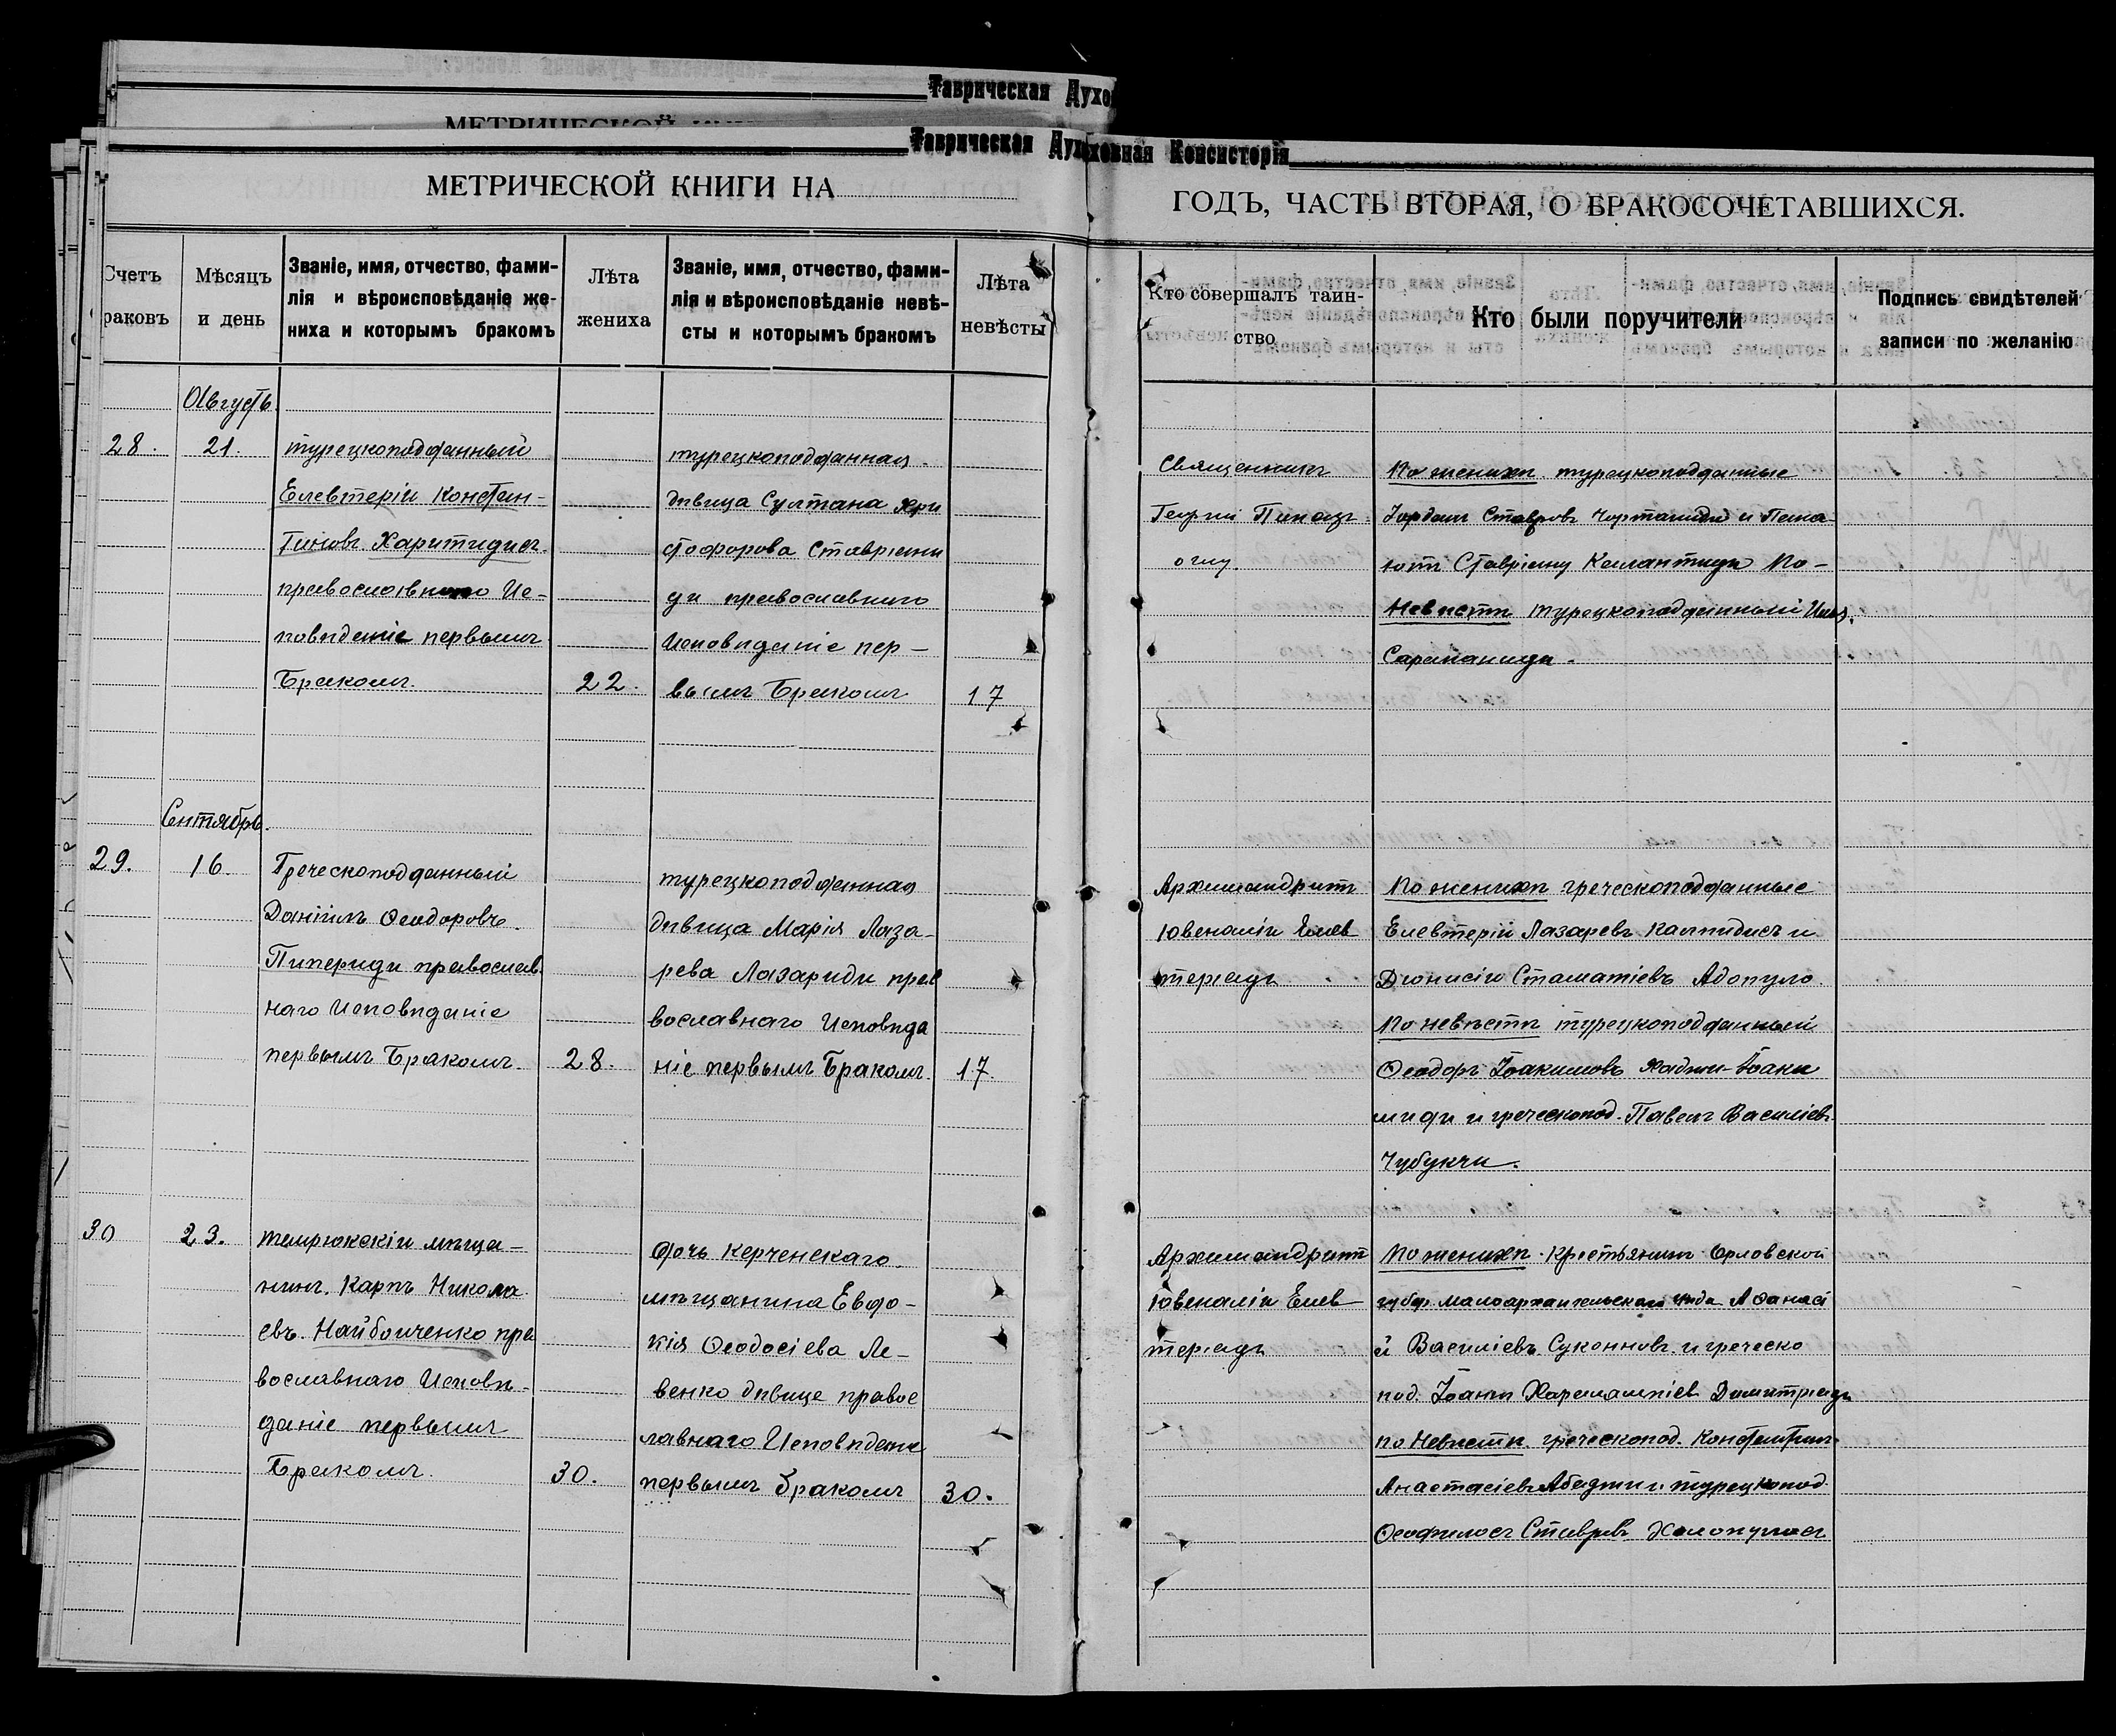 Таврическая Духо
МЕТРИЧЕСКОЙ
Таврическая Духовная Консисторія
МЕТРИЧЕСКОЙ КНИГИ НА
ГОДЪ, ЧАСТЬ ВТОРАЯ, О БРАКОСОЧЕТАВШИХСЯ.
Счетъ
раковъ
Мѣсяцъ
и день
Званіе, имя, отчество, фами-
лія и вѣроисповѣданіе же-
ниха и которымъ бракомъ
Лѣта
жениха
Званіе, имя, отчество, фами-
лія и вѣроисповѣданіе невѣ-
сты и которымъ бракомъ
Лѣта
невѣсты
Кто совершалъ таин-
ство
Кто были поручители
Подпись свидѣтелей
записи по желанію
Августъ
28.
21.
турецкоподданный
Елевтерій Констан-
тиновъ Харитидисъ
православнаго Ис-
повѣденіе первымъ
Бракомъ.
22.
турецкоподданная
дѣвица Султана Хри
стофорова Ставріани
ди православнаго
Исповѣданіе пер-
вымъ Бракомъ
17
Священникъ
Георгій
По женихѣ турецкоподданные
Ставровъ
Ставріану По-
Невѣстѣ турецкоподданный
Сентябрь.
29.
16.
Греческоподданный
Даніилъ Ѳеодоровъ
Пипериди православ
наго Исповѣданіе
первымъ Бракомъ.
28.
турецкоподданная
дѣвица Марія Лаза-
рева Лазариди пра
вославнаго Исповѣда
ніе первымъ Бракомъ
17.
Архимандритъ
Ювеналій Елев
теріадъ
По женихѣ греческоподданные
Елевтерій Лазаревъ Калпидисъ и
Діонисій Стаматіевъ Адопуло.
По невѣстѣ турецкоподданный
Ѳеодоръ Іоакимовъ Хаджи-Іоаки
миди и греческопод. Павелъ Василіевъ
Чубукчи.
30
23.
темрюкскій мѣща-
нинъ. Карпъ Никола
евъ. Найбоиченко пра
вославнаго Исповѣ-
даніе первымъ
Бракомъ.
30.
дочь керченскаго
мѣщанина Евдо-
кія Ѳеодосіева Ле-
венко дѣвице правос
лавнаго Исповѣдане
первымъ Бракомъ
30.
Архимандритъ
Ювеналій Елев
теріадъ
По женихѣ крестьянинъ Орловской
губер. Малоархангельскаго уѣзда Аѳанасі
й Василіевъ Суконновъ и греческо
под. Іоанъ Харалампіев Димитріадъ
по Невѣстѣ греческопод. Константинъ
Анастасіевъ и турецкопод.
Ѳеофилосъ Ставровъ